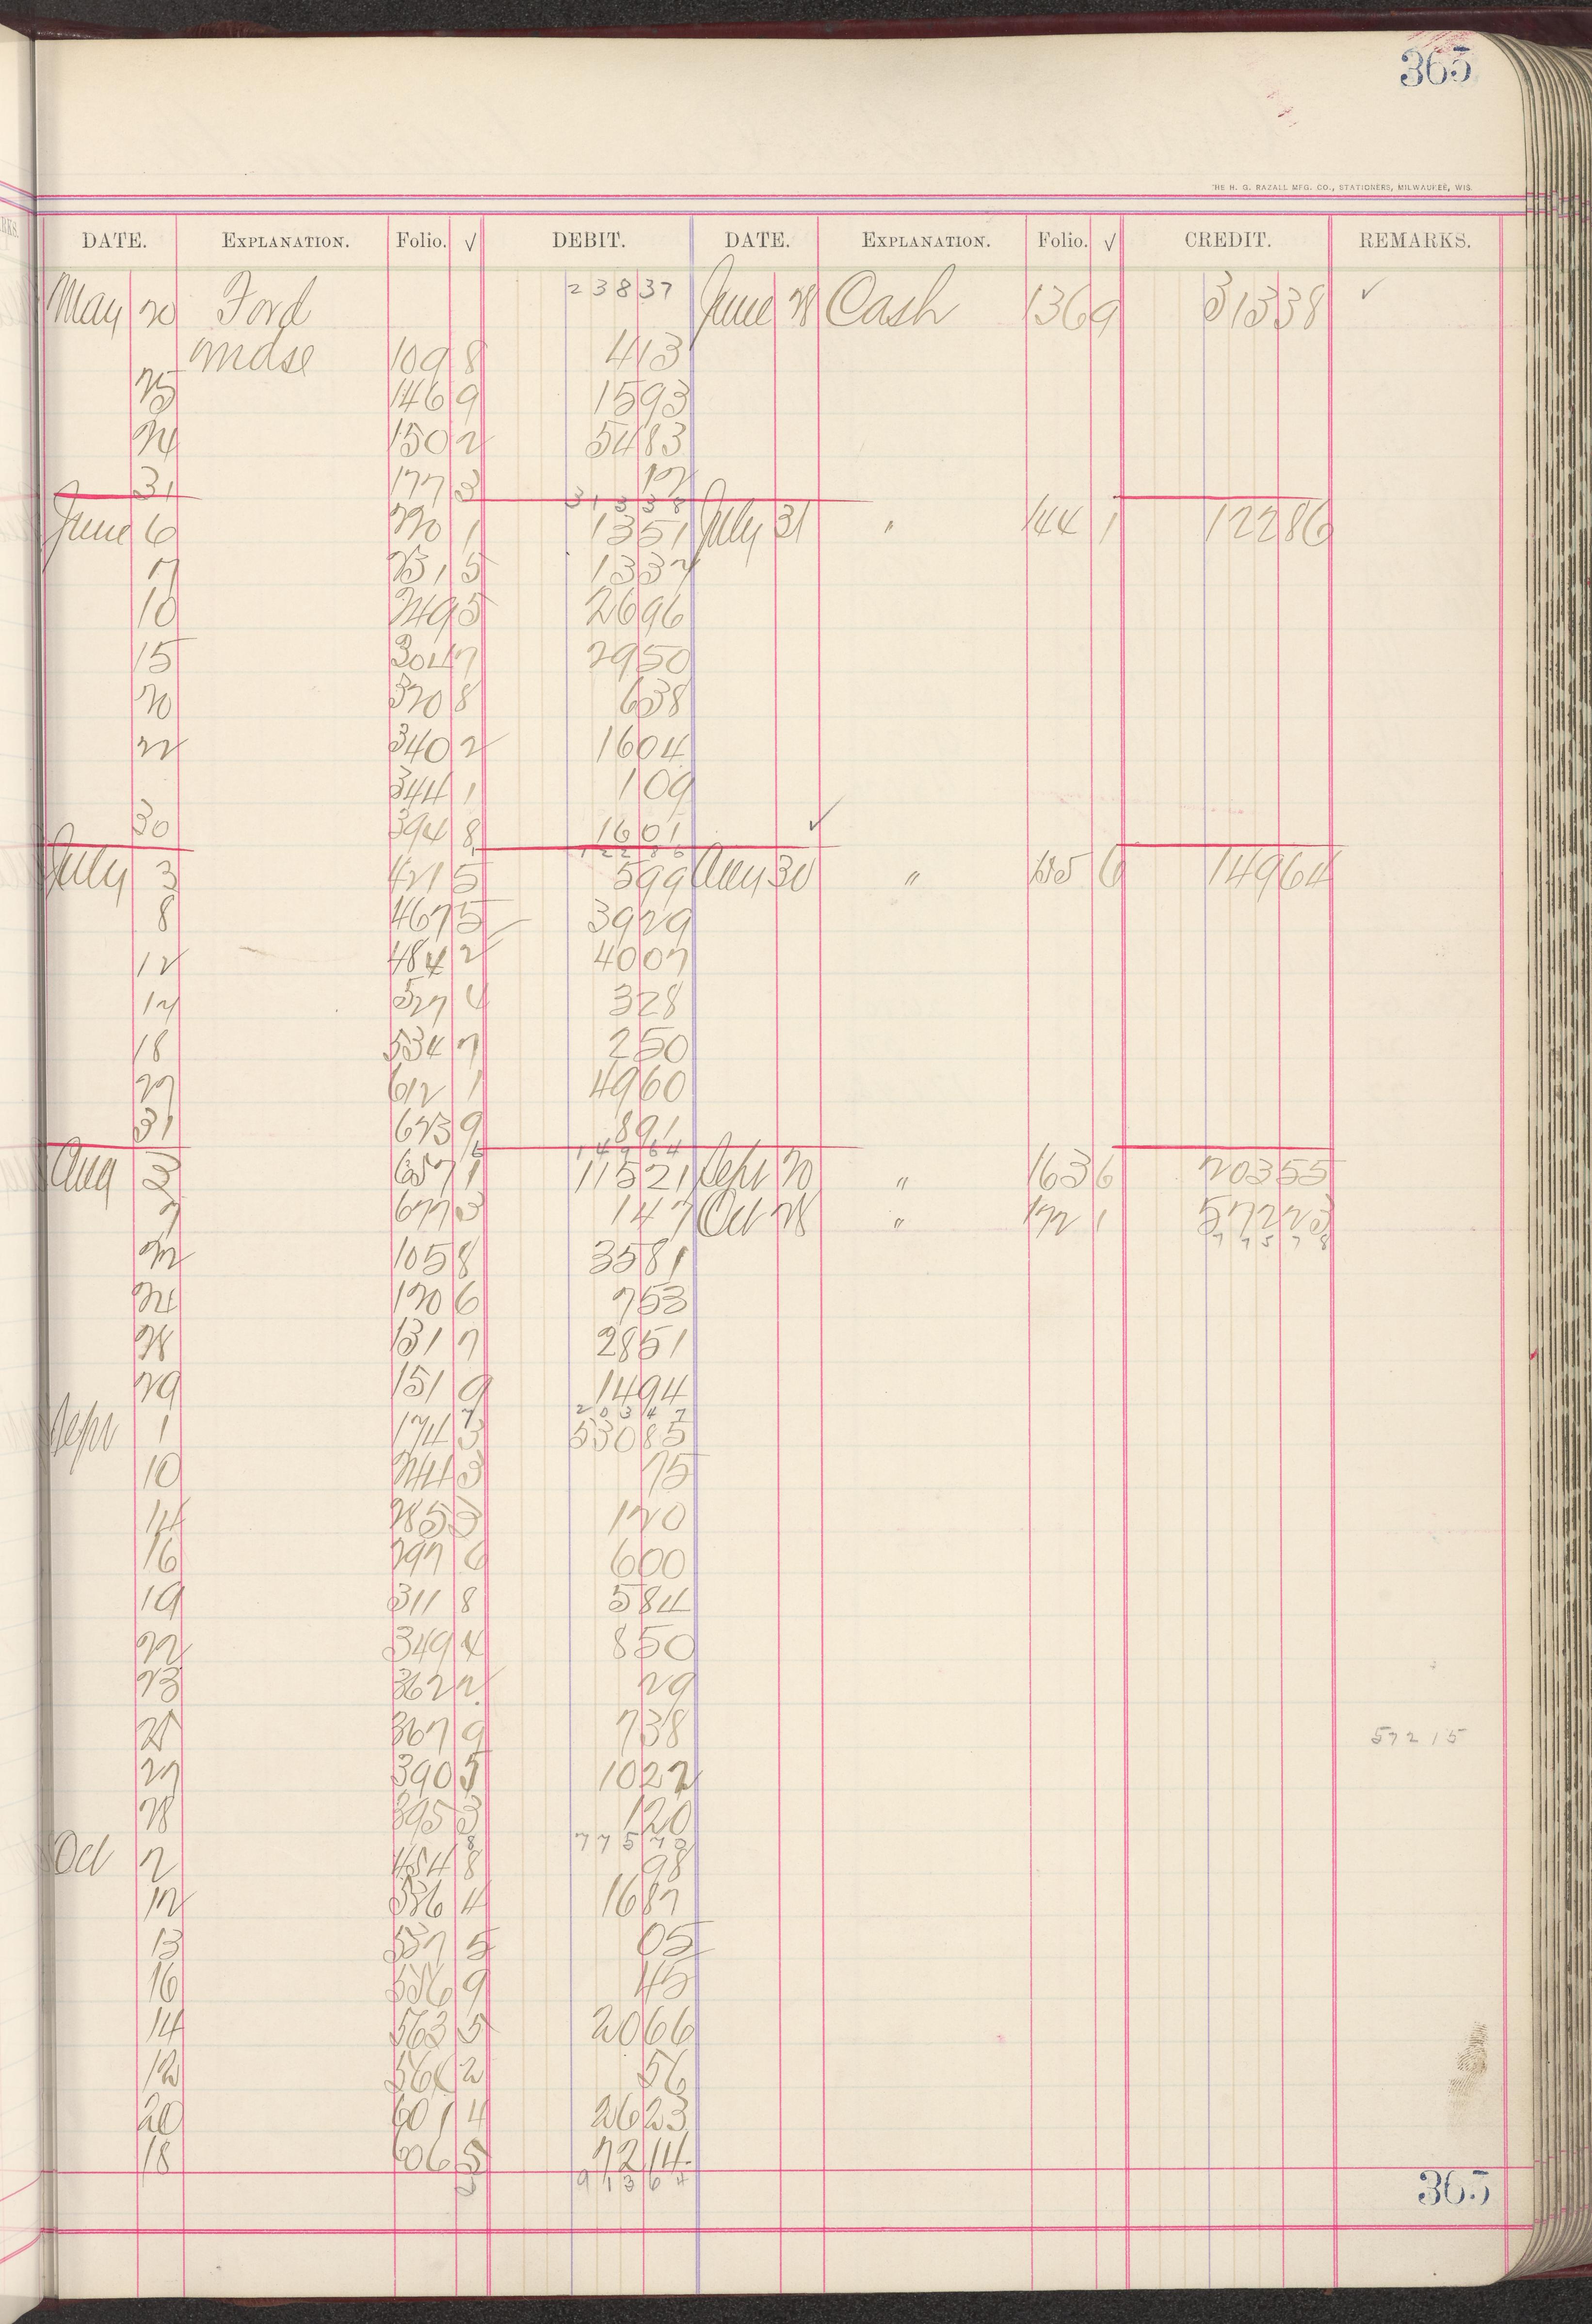 365
THE H. G. RAZALL MFG. CO., STATIONERS, MILWAUKEE, WIS.
DATE. EXPLANATION. Folio. √ DEBIT. DATE. EXPLANATION. Folio. √ CREDIT. REMARKS.
May 20 Ford 238 37 June 28 Cash 1369 313 38 ✓
Mdse 1098 4 13
25 1469 15 93
24 1502 54 83
31 1773 12
313 38
June 6 2201 13 51 July 31 " 1441 122 86
7 2315 13 37
10 2495 26 96
15 3047 29 50
20 3208 6 38
22 3402 16 04
3441 1 09
30 3948 16 01 ✓
122 86
July 3 4215 5 99 Aug 30 " 1556 149 64
8 4675 39 29
12 4842 40 07
17 5274 3 28
18 5347 2 50
27 6121 49 60
31 6439 8 91
149 64
Aug 3 6571 115 21 Sept 20 " 1636 203 55
7 6773 1 47 Oct 28 " 1721 572 23
775 78
22 1058 35 81
24 1206 7 53
28 1317 28 51
29 1519 14 94
203 47
Sept 1 1743 530 85
10 2443 75
14 2853 1 20
16 2976 6 00
19 3118 5 84
22 3494 8 50
23 3622 29
25 3679 7 38
572 15
27 3905 10 22
28 3953 1 20
775 78
Oct 2 4548 98
12 5364 16 87
13 5375 05
16 5569 45
14 5635 20 66
12 5662 56
20 6014 26 23
18 6065 72 14
913 64
365